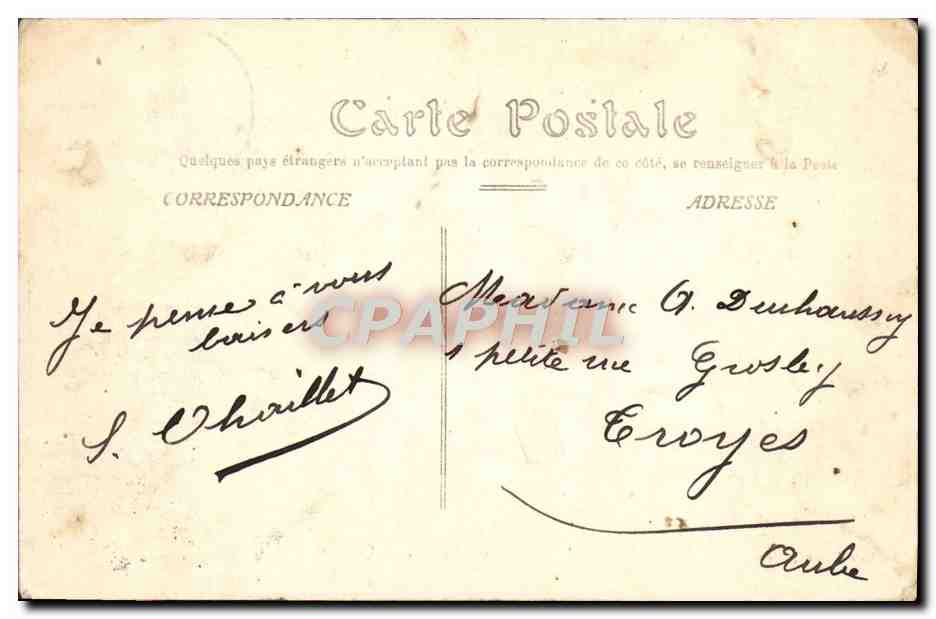 Carte Postale
Quelques pays étrangers n'acceptant pas la correspondance de ce côté, se renseigner à la Poste
CORRESPONDANCE
ADRESSE
Je pense à vous
baisers
S. Chaillet
Madame A.
1 petite rue Grosley
Troyes
Aube
CPAPHIL